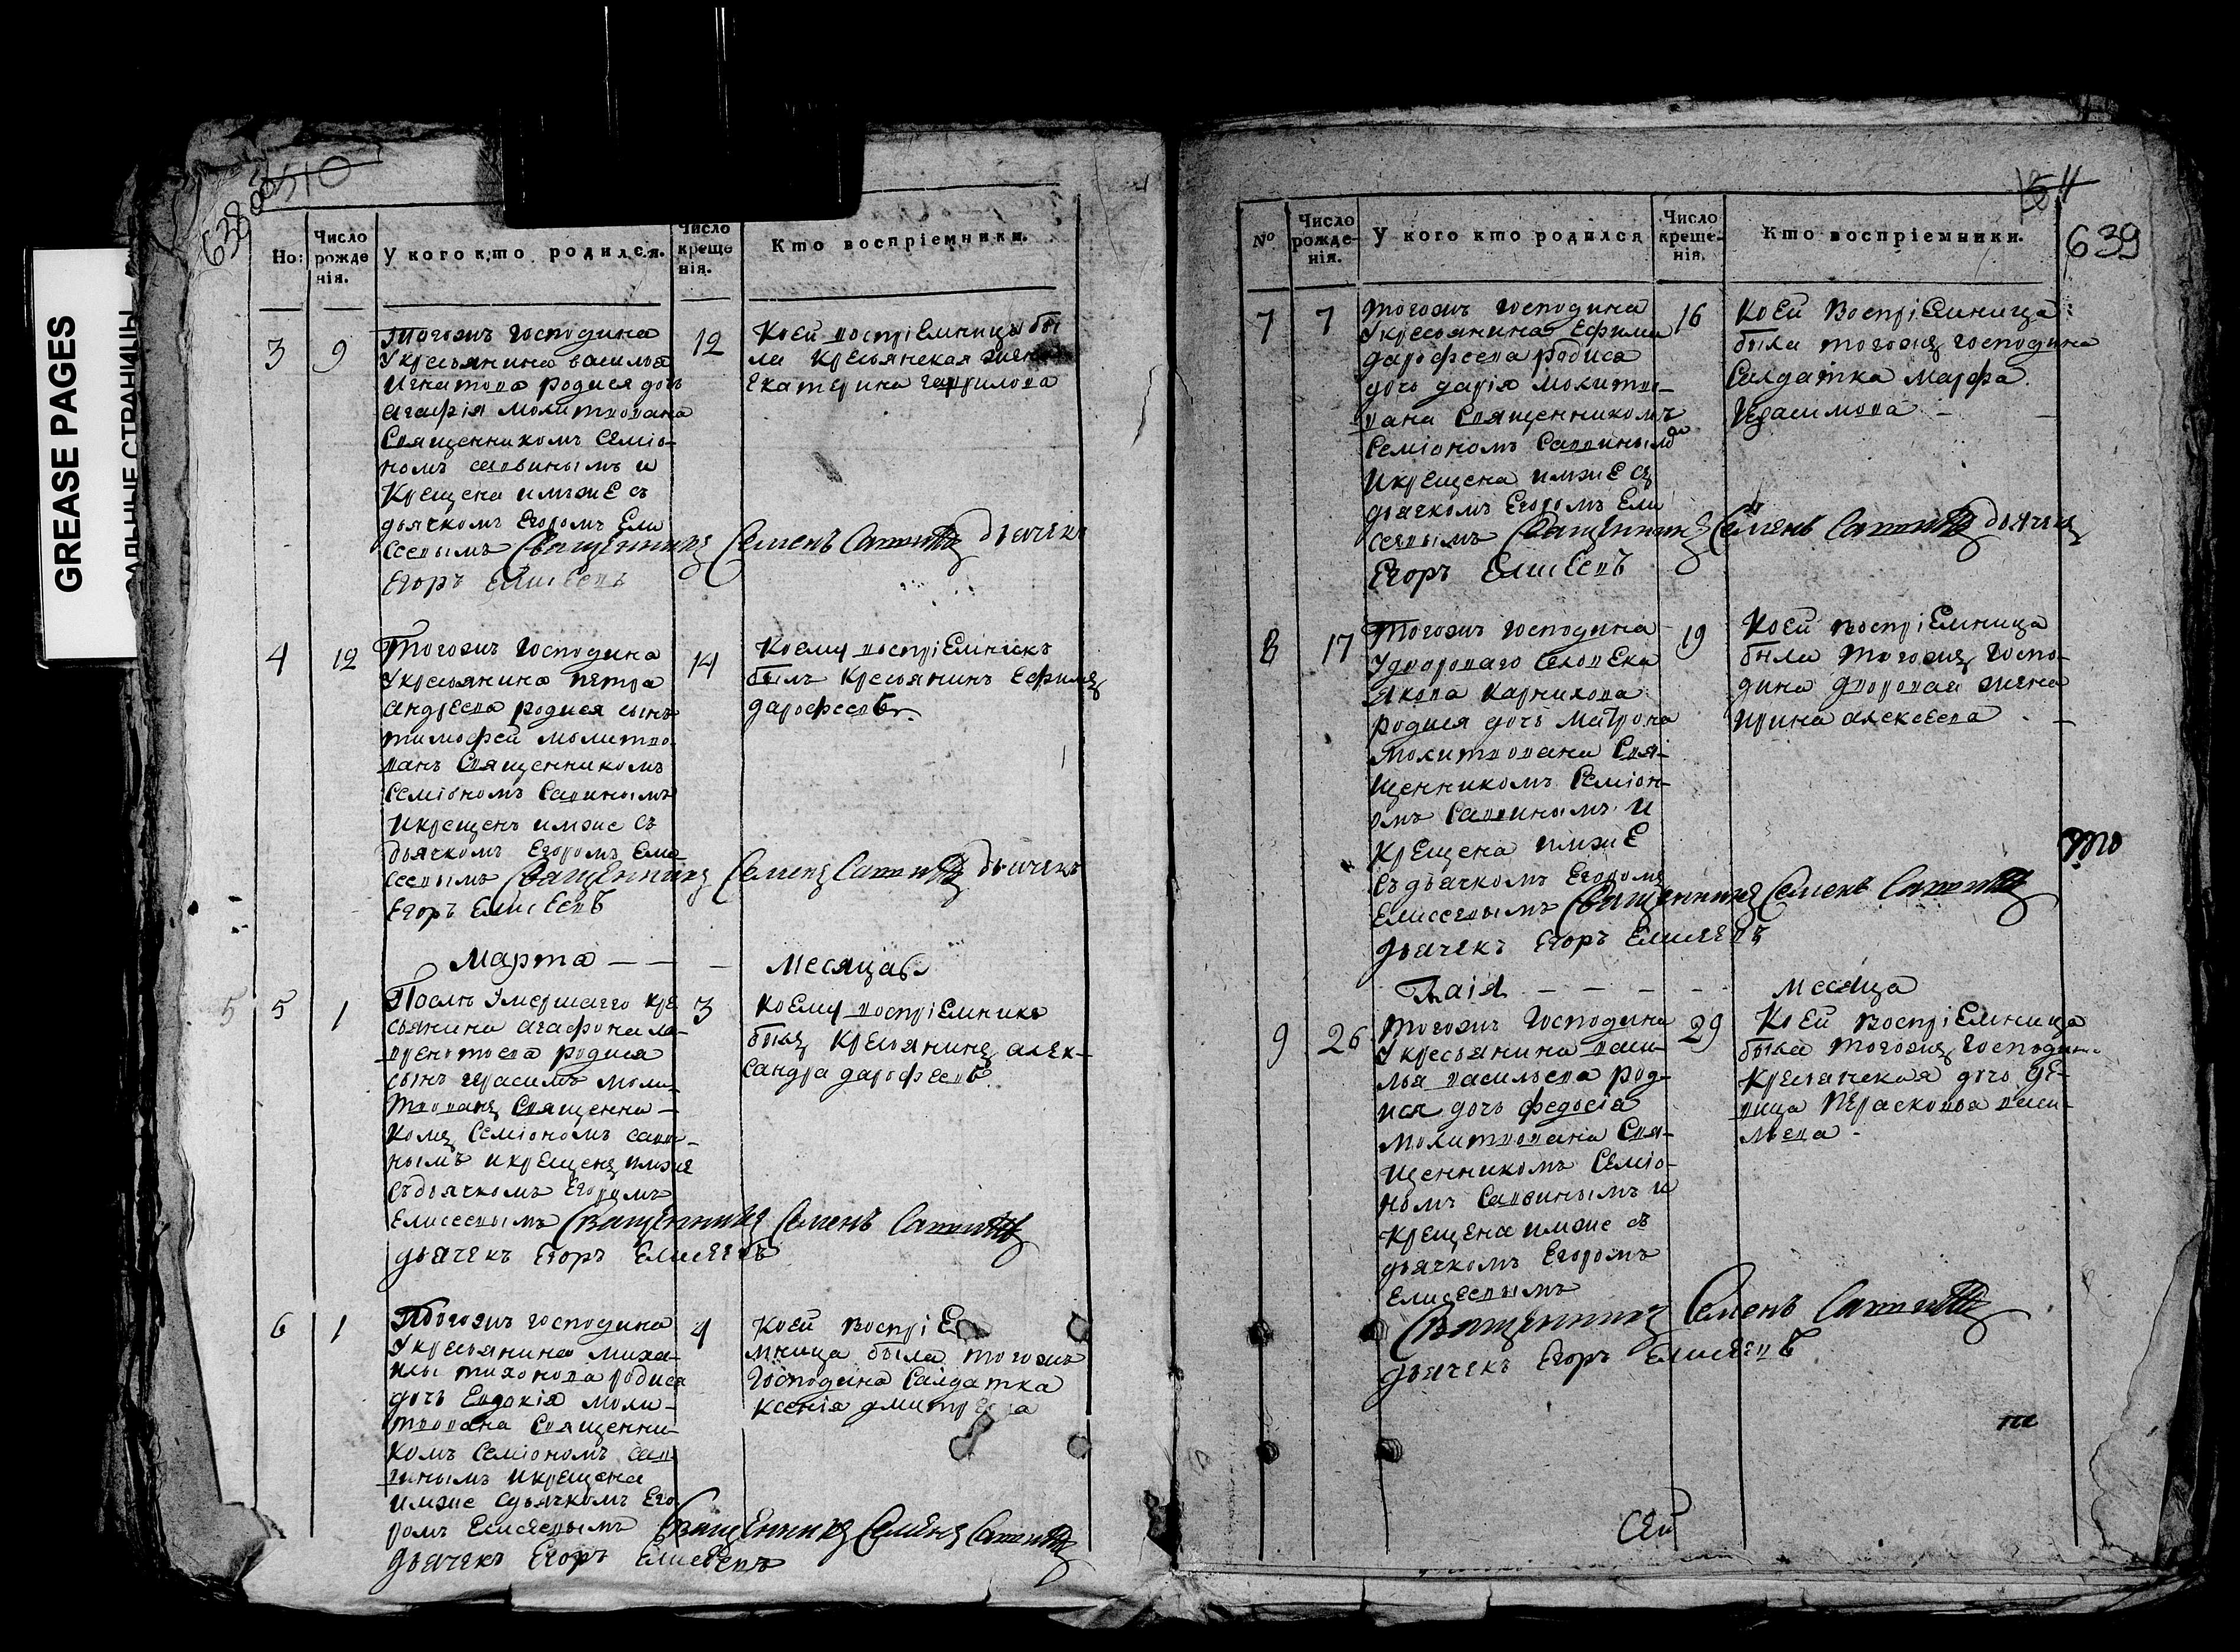 GREASE PAGES
638
510
Но:
Число рожде нія.
У кого кто родился.
Число креще нія.
Кто воспріемники.
3
9
Тогожъ господина
у крестьянина василья
игнатова родися дочь
агафія молитвована
священникомъ семіо-
номъ саввинымъ и
крещена имъже съ
дьячкомъ Егоромъ Ели
сеевымъ Священникъ Семенъ дьячекъ
Егоръ Елисеевъ
12
Коей воспріемница бы
ла крестьянская жена
екатерина гаврилова
4
12
Тогожъ господина
у крестьянина петра
андреева родися сынъ
тимофей молитво
ванъ Священникомъ
Семіономъ Савинымъ
и крещенъ имже съ
дьячкомъ Егоромъ Ели
сеевымъ Священникъ Семенъ дьячекъ
Егоръ Елисеевъ
14
Коему воспріемникъ
былъ крестьянинъ Ефимъ
дарофеевъ
Марта - - - месяца
5
5
1
После умершаго кре
стьянина агафона ла-
родися
сынъ герасимъ моли-
твованъ Священни-
комъ Семіономъ сави-
нымъ и крещенъ имже
съ дьячкомъ Егоромъ
Елисеевымъ Священникъ Семенъ
дьячекъ Егоръ Елисеевъ
3
Коему воспріемникъ
былъ крестьянинъ алек-
сандра дарофеевъ
6
1
Тогожъ господина
у крестьянина миха-
илы тихонова родися
дочь Евдокія моли-
твована Священни-
комъ Семіономъ сав-
инымъ и крещена
имже съ дьячкомъ Его
ромъ Елисеевымъ Священникъ Семенъ
дьячекъ Егоръ Елисеевъ
4
Коей воспріе
мница была тогожъ
господина салдатка
ксенія дмитреева
11
639
№
Число рожде- нія.
У кого кто родился
Число креще- нія.
Кто воспріемники.
7
7
тогожъ господина
у крестьянина Ефима
дарофеева родися
дочь дарія молитво-
вана Священникомъ
Семіономъ Саввинымъ
и крещена имже съ
дьячкомъ Егоромъ Ели
сеевымъ Священникъ Семенъ дьячекъ
Егоръ Елисеевъ
16
Коей воспріемница
была тогожъ господина
салдатка марфа
герасимова -
8
17
Тогожъ господина
у двороваго человека
якова карнилова
родися дочь матрона
молитвована Свя-
щенникомъ Семіон-
омъ Саввинымъ и
крещена имже
съ дьячкомъ Егоромъ
Елисеевымъ Священникъ Семенъ
дьячекъ Егоръ Елисеевъ
19
Коей воспріемница
была тогожъ госпо-
дина дворовая жена
ирина алексеева -
Маія - - - - месяца
9
26
тогожъ господина
у крестьянина васи-
лья васильева род-
ися дочь федосія
молитвована Свя-
щенникомъ Семіо-
номъ Саввинымъ и
крещена имже съ
дьячкомъ Егоромъ
Елисеевымъ
Священникъ Семенъ
дьячекъ Егоръ Елисеевъ
29
Коей воспріемница
была тогожъ господина
крестьянская дочь де-
вица перасковья васи-
льева -
сей